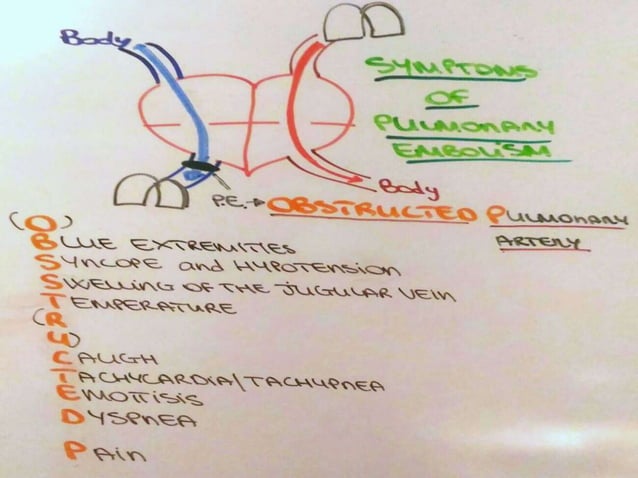 Body
SYMPTOMS
OF
PULMONARY
EMBOLISM
Body
P.E. → OBSTRUCTED PULMONARY
ARTERY
(O)
BLUE EXTREMITIES
SYNCOPE and HYPOTENSION
SWELLING OF THE JUGULAR VEIN
TEMPERATURE
(R
U)
CAUGH
TACHYCARDIA/TACHYPNEA
EMOTTISIS
DYSPNEA
PAIN